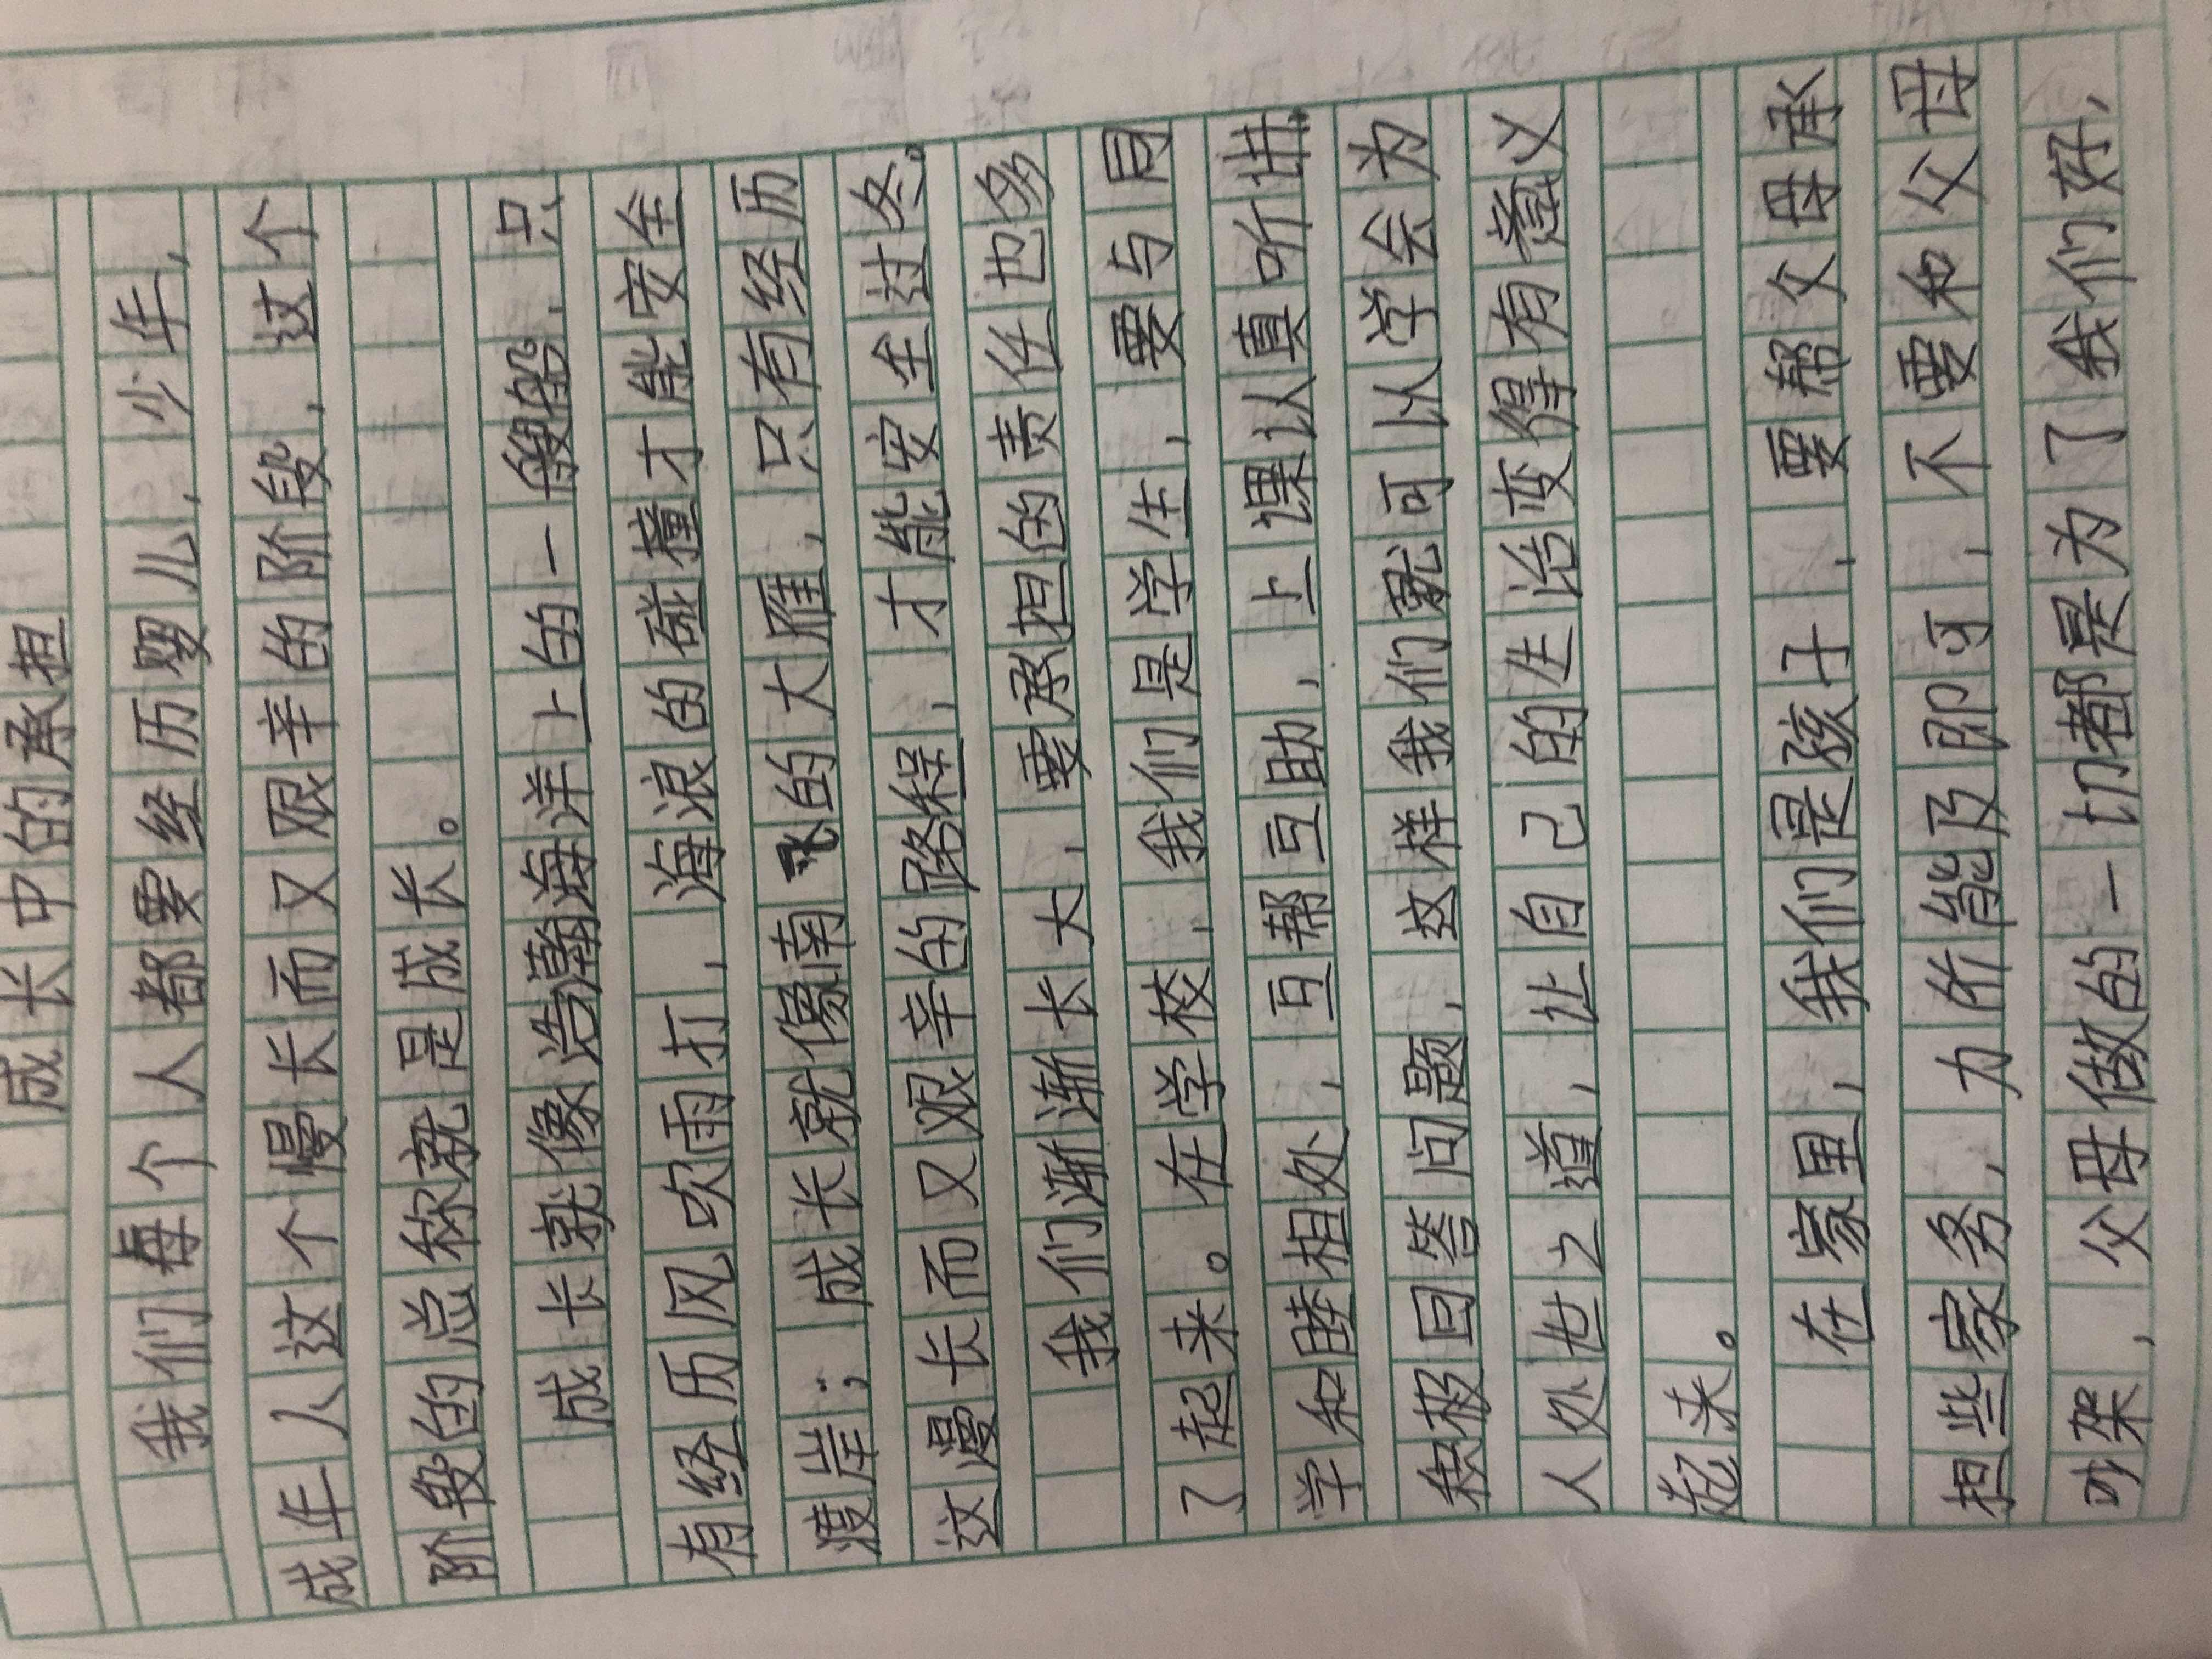 成长中的承担
我们每个人都要经历婴儿,少年,
成年人这个慢长而又艰辛的阶段,这个
阶段的总称就是成长。
成长就像浩瀚海洋上的一艘船,只
有经历风吹雨打,海浪的碰撞才能安全
渡岸;成长就像南飞的大雁,只有经历
这漫长而又艰辛的路程,才能安全过冬。
我们渐渐长大,要承担的责任也多
了起来。在学校,我们是学生,要与同
学和睦相处,互帮互助,上课认真听讲,
积极回答问题,这样我们就可以学会为
人处世之道,让自己的生活变得有意义
起来。
在家里,我们是孩子,要帮父母承
担些家务,力所能及即可,不要和父母
吵架,父母做的一切都是为了我们好,